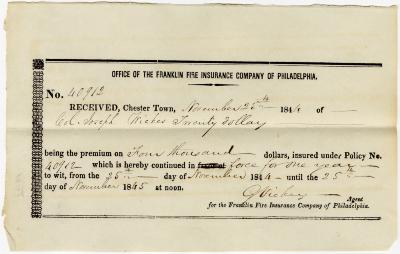 OFFICE OF THE FRANKLIN FIRE INSURANCE COMPANY OF PHILADELPHIA.
No. 40912
RECEIVED, Chester Town, November 25th 1844 of
Col. Joseph Wickes Twenty dollars
being the premium on Four thousand dollars, insured under Policy No.
40912 which is hereby continued in force for one year
to wit, from the 25th day of November 1844 until the 25th
day of November 1845 at noon.
Agent
for the Franklin Fire Insurance Company of Philadelphia.